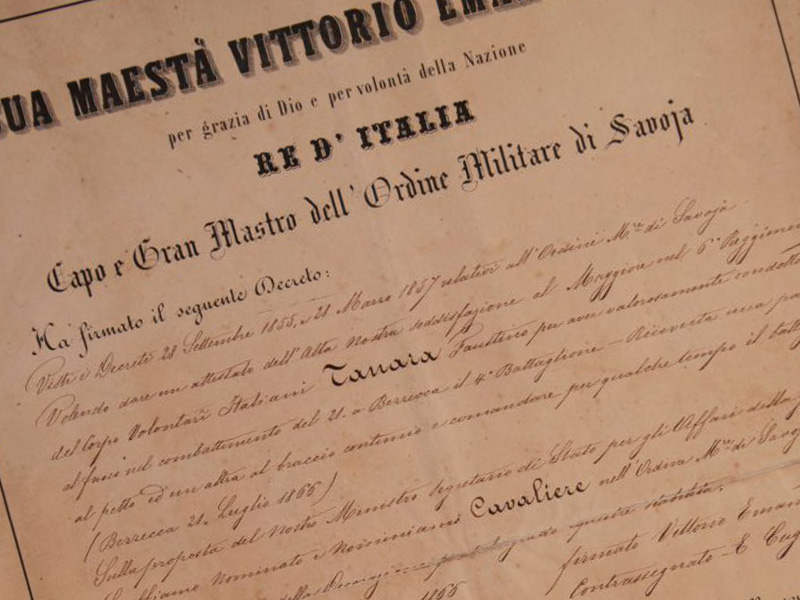 SUA MAESTÀ VITTORIO EMA
per grazia di Dio e per volontà della Nazione
RE D' ITALIA
Capo e Gran Mastro dell' Ordine Militare di Savoja
Ha firmato il seguente Decreto:
Visti i Decreti 28 Settembre 1855, e 28 Marzo 1857 relativi all'Ordine M.re di Savoja
Volendo dare un attestato dell'Alta Nostra soddisfazione al Maggiore nel 6° Reggimen
del Corpo Volontari Italiani Tanara Faustino per aver valorosamente condotto
al fuoco nel combattimento del 21. a Bezzecca il 4° Battaglione - Ricevuta una pa
al petto ed un'altra al braccio continuò a comandare per qualche tempo il batt
(Bezzecca 21. Luglio 1866)
Sulla proposta del Nostro Ministro Segretario di Stato per gli Affari della
Abbiamo nominato e nominiamo Cavaliere nell'Ordine M.re di Savoj
della
1866
firmato Vittorio Eman
Contrassegnato - E Cug